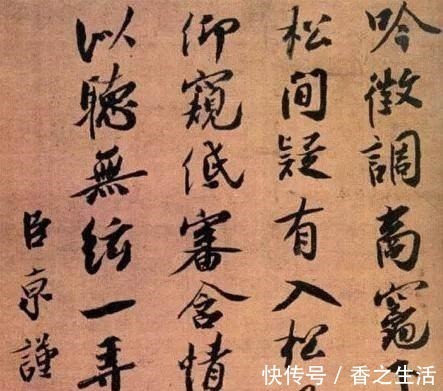 吟徵調商竈
松間疑有入松
仰窺低審含情
以聽無絃一弄
臣京謹
快传号 / 香之生活